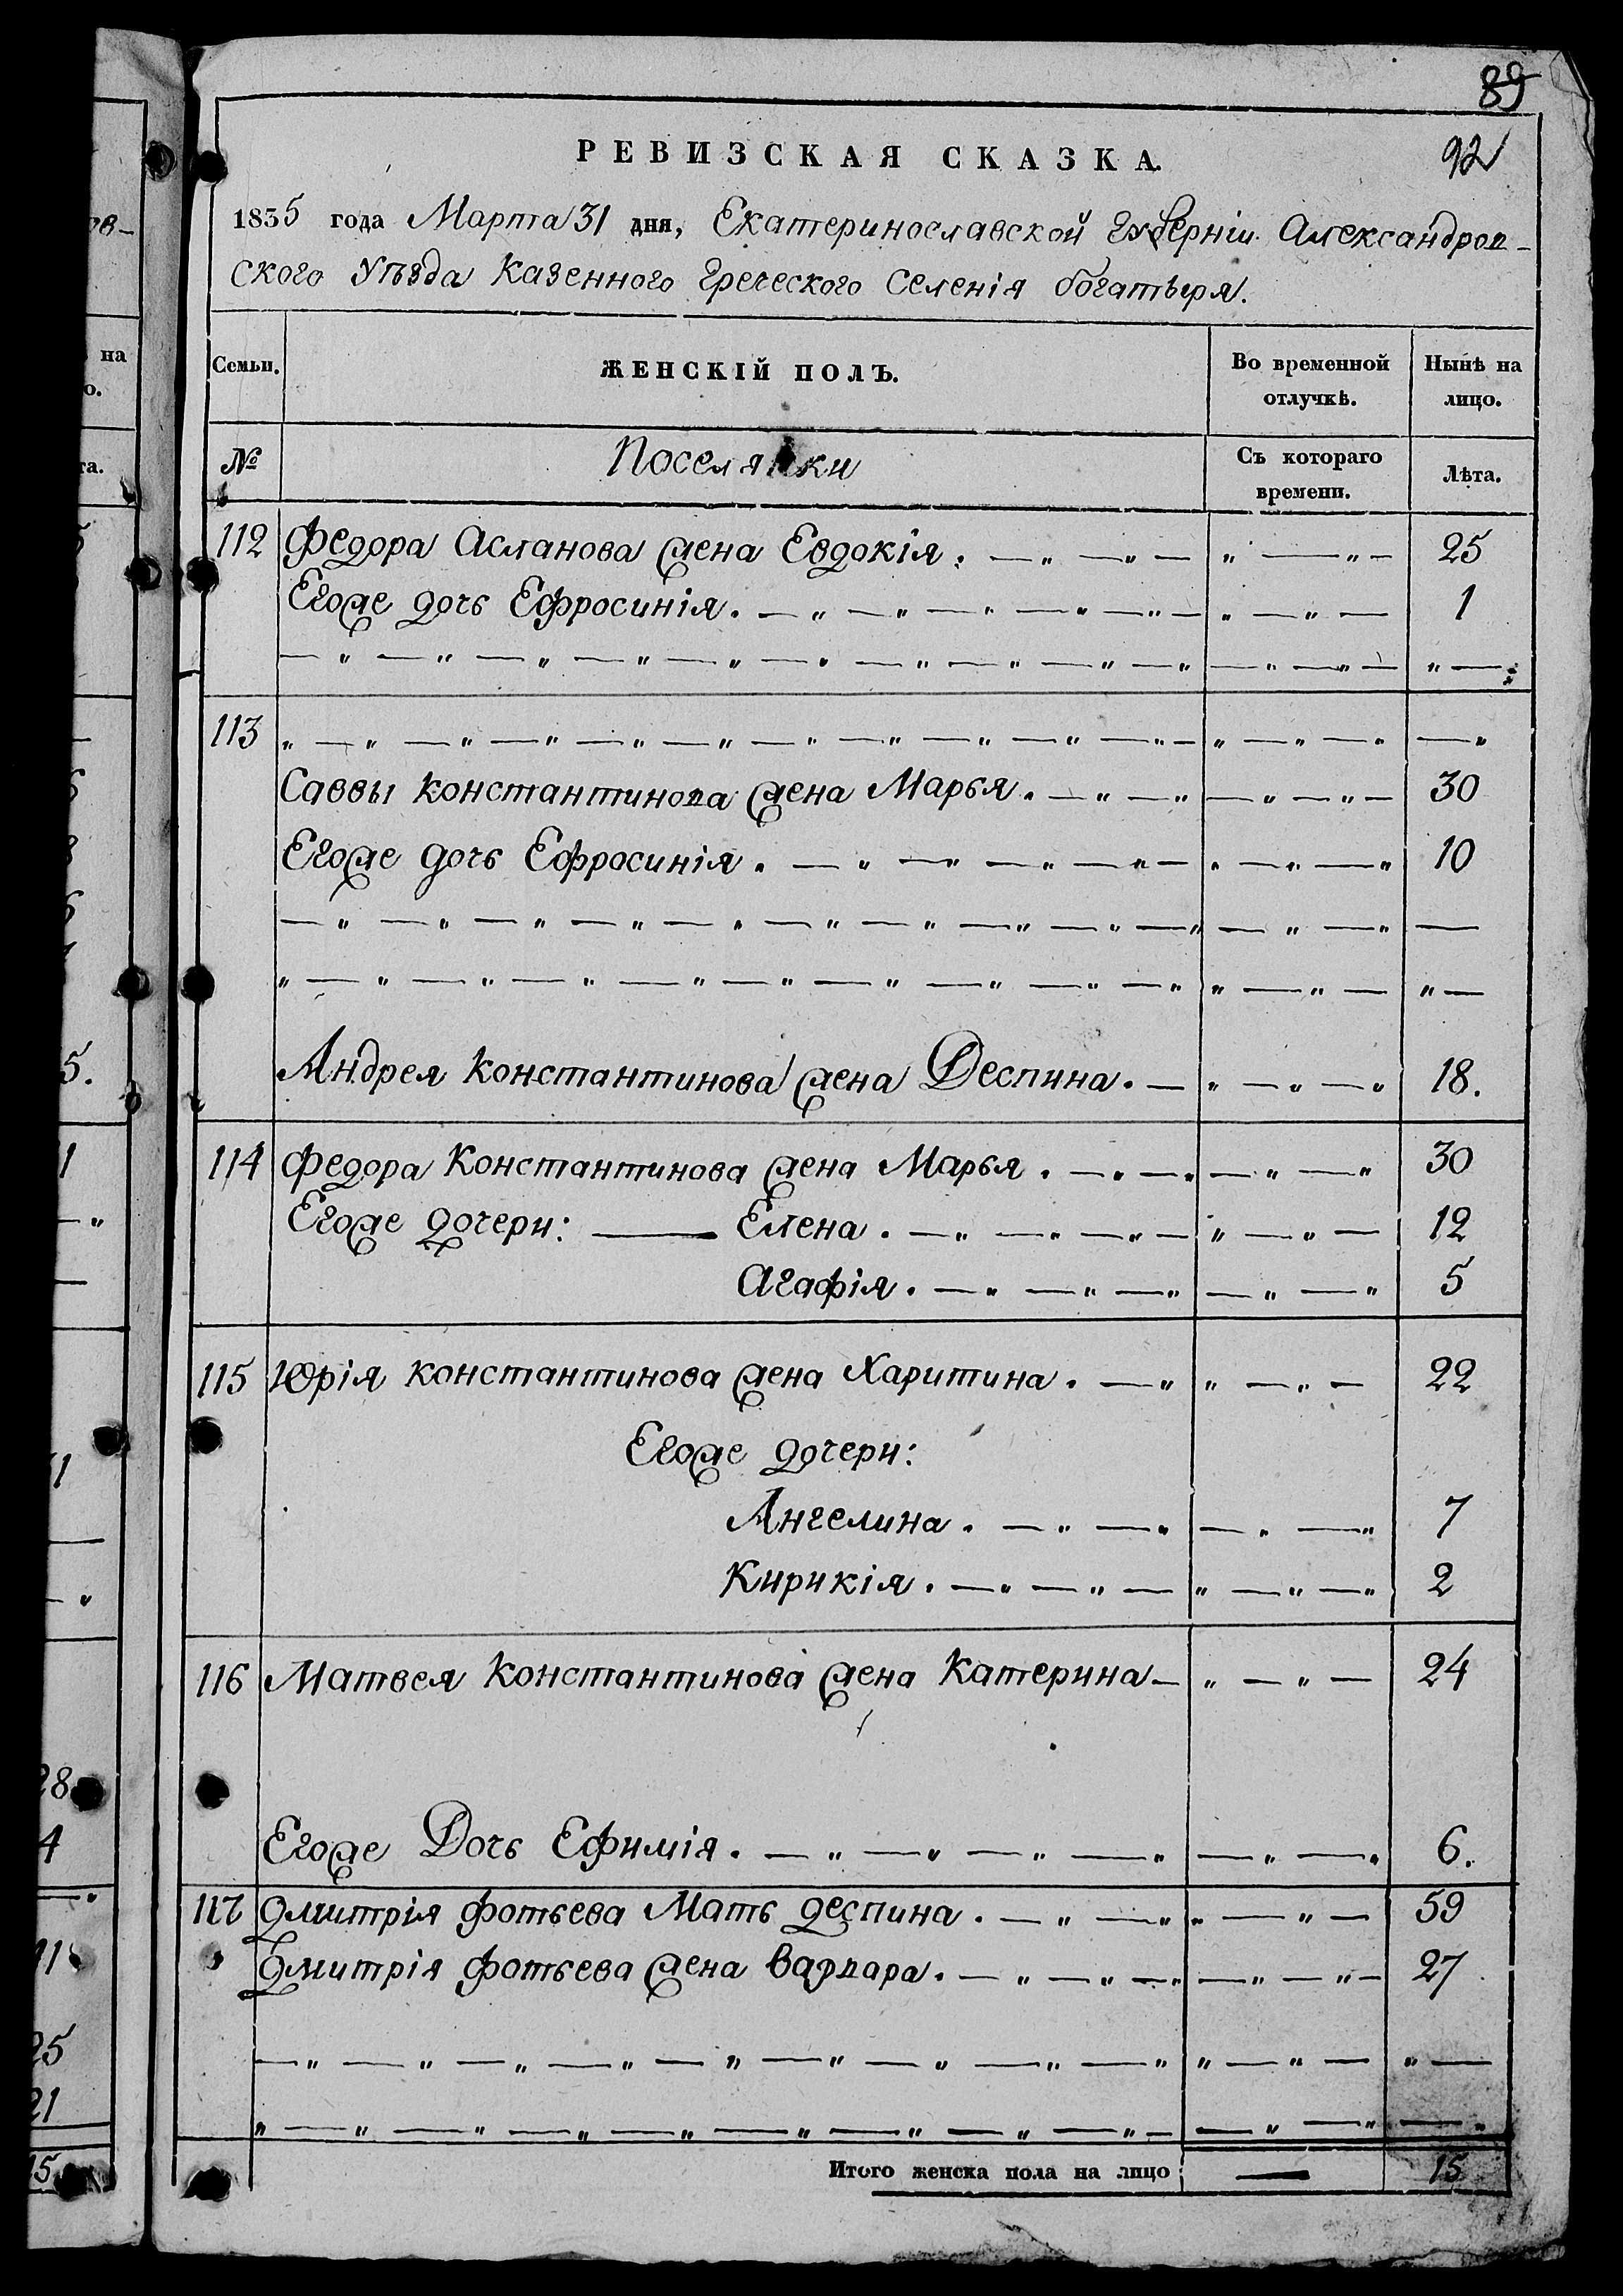 89
РЕВИЗСКАЯ СКАЗКА.
92
1835 года Марта 31 дня, Екатеринославской Губерніи Александров-
ского Уѣзда Казенного Греческого Селенія богатыря.
Семьи.
ЖЕНСКІЙ ПОЛЪ.
Во временной отлучкѣ.
Нынѣ на лицо.
№
Поселянки
Съ котораго времени.
Лѣта.
112 Федора Асланова жена Евдокія. — „ — „ — „ — „ — 25
Егоже дочь Ефросинія. — „ — „ — „ — „ — „ — „ — „ — 1
— „ — „ — „ — „ — „ — „ — „ — „ — „ — „ — „ — „ — „ —
113 „ — „ — „ — „ — „ — „ — „ — „ — „ — „ — „ — „ — „ — „
Саввы Константинова жена Марья. — „ — „ — „ — „ — 30
Егоже дочь Ефросинія. — „ — „ — „ — „ — „ — „ — „ 10
— „ — „ — „ — „ — „ — „ — „ — „ — „ — „ — „ — „ —
„ — „ — „ — „ — „ — „ — „ — „ — „ — „ „ — „ — „ —
Андрея Константинова жена Деспина. — „ — „ — „ 18.
114 Федора Константинова жена Марья. — „ — „ — „ — „ 30
Егоже дочери: — Елена. — „ — „ — „ — „ — „ — 12
Агафія. — „ — „ — „ — „ — „ 5
115 Юрія Константинова жена Харитина. — „ „ — „ — 22
Егоже дочери:
Ангелина. — „ — „ — „ — „ 7
Кирикія. — „ — „ — „ — „ — „ 2
116 Матвея Константинова жена Катерина — „ — „ — 24
Егоже Дочь Ефимія. — „ — „ — „ — „ — „ — „ 6.
117 Дмитрія Фотьева Мать Деспина. — „ — „ „ — „ — 59
Дмитрія Фотьева жена Варвара. — „ — „ — „ — „ — „ — 27
— „ — „ — „ — „ — „ — „ — „ — „ — „ „ — „ — „ —
„ — „ — „ — „ — „ — „ — „ — „ — „ — — „ — „ — „
Итого женска пола на лицо — 15